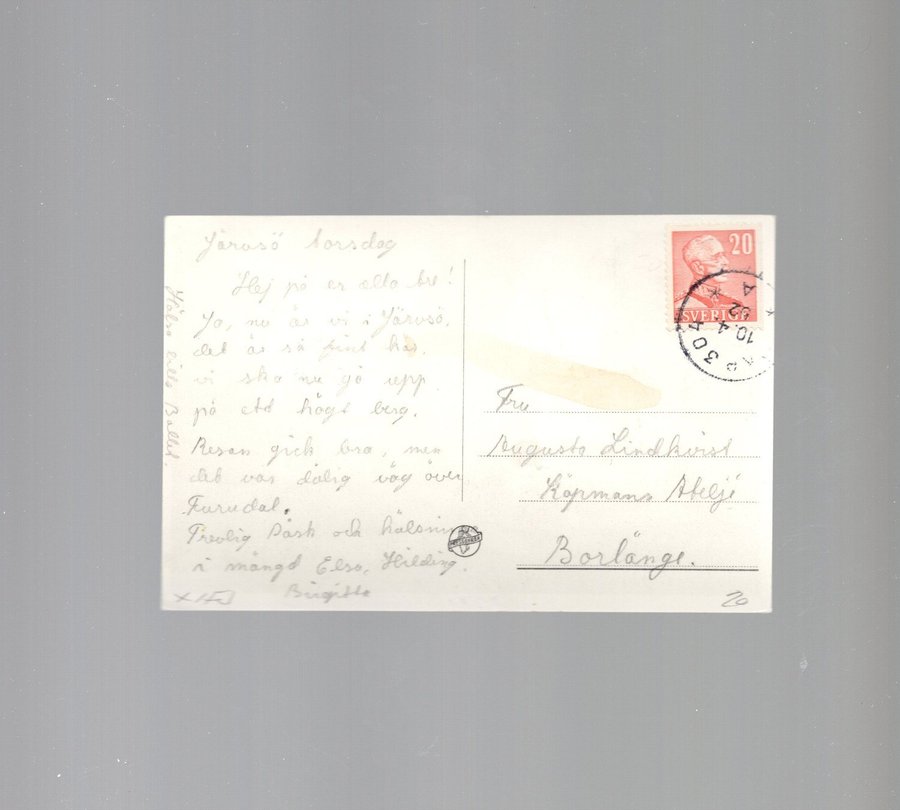 Järvsö torsdag
Hej på er alla tre!
Ja, nu är vi i Järvsö,
det är så fint här,
vi ska nu gå upp
på ett högt berg.
Resan gick bra, men
det var dålig väg över
Furudal.
Trevlig Påsk och hälsnin
i mängd Elsa, Hilding.
Birgitta
Hälsa
20
SVERIGE
304
10.4.52
Fru
Augusta Lindkvist
Köpmans Ateljé
Borlänge.
20